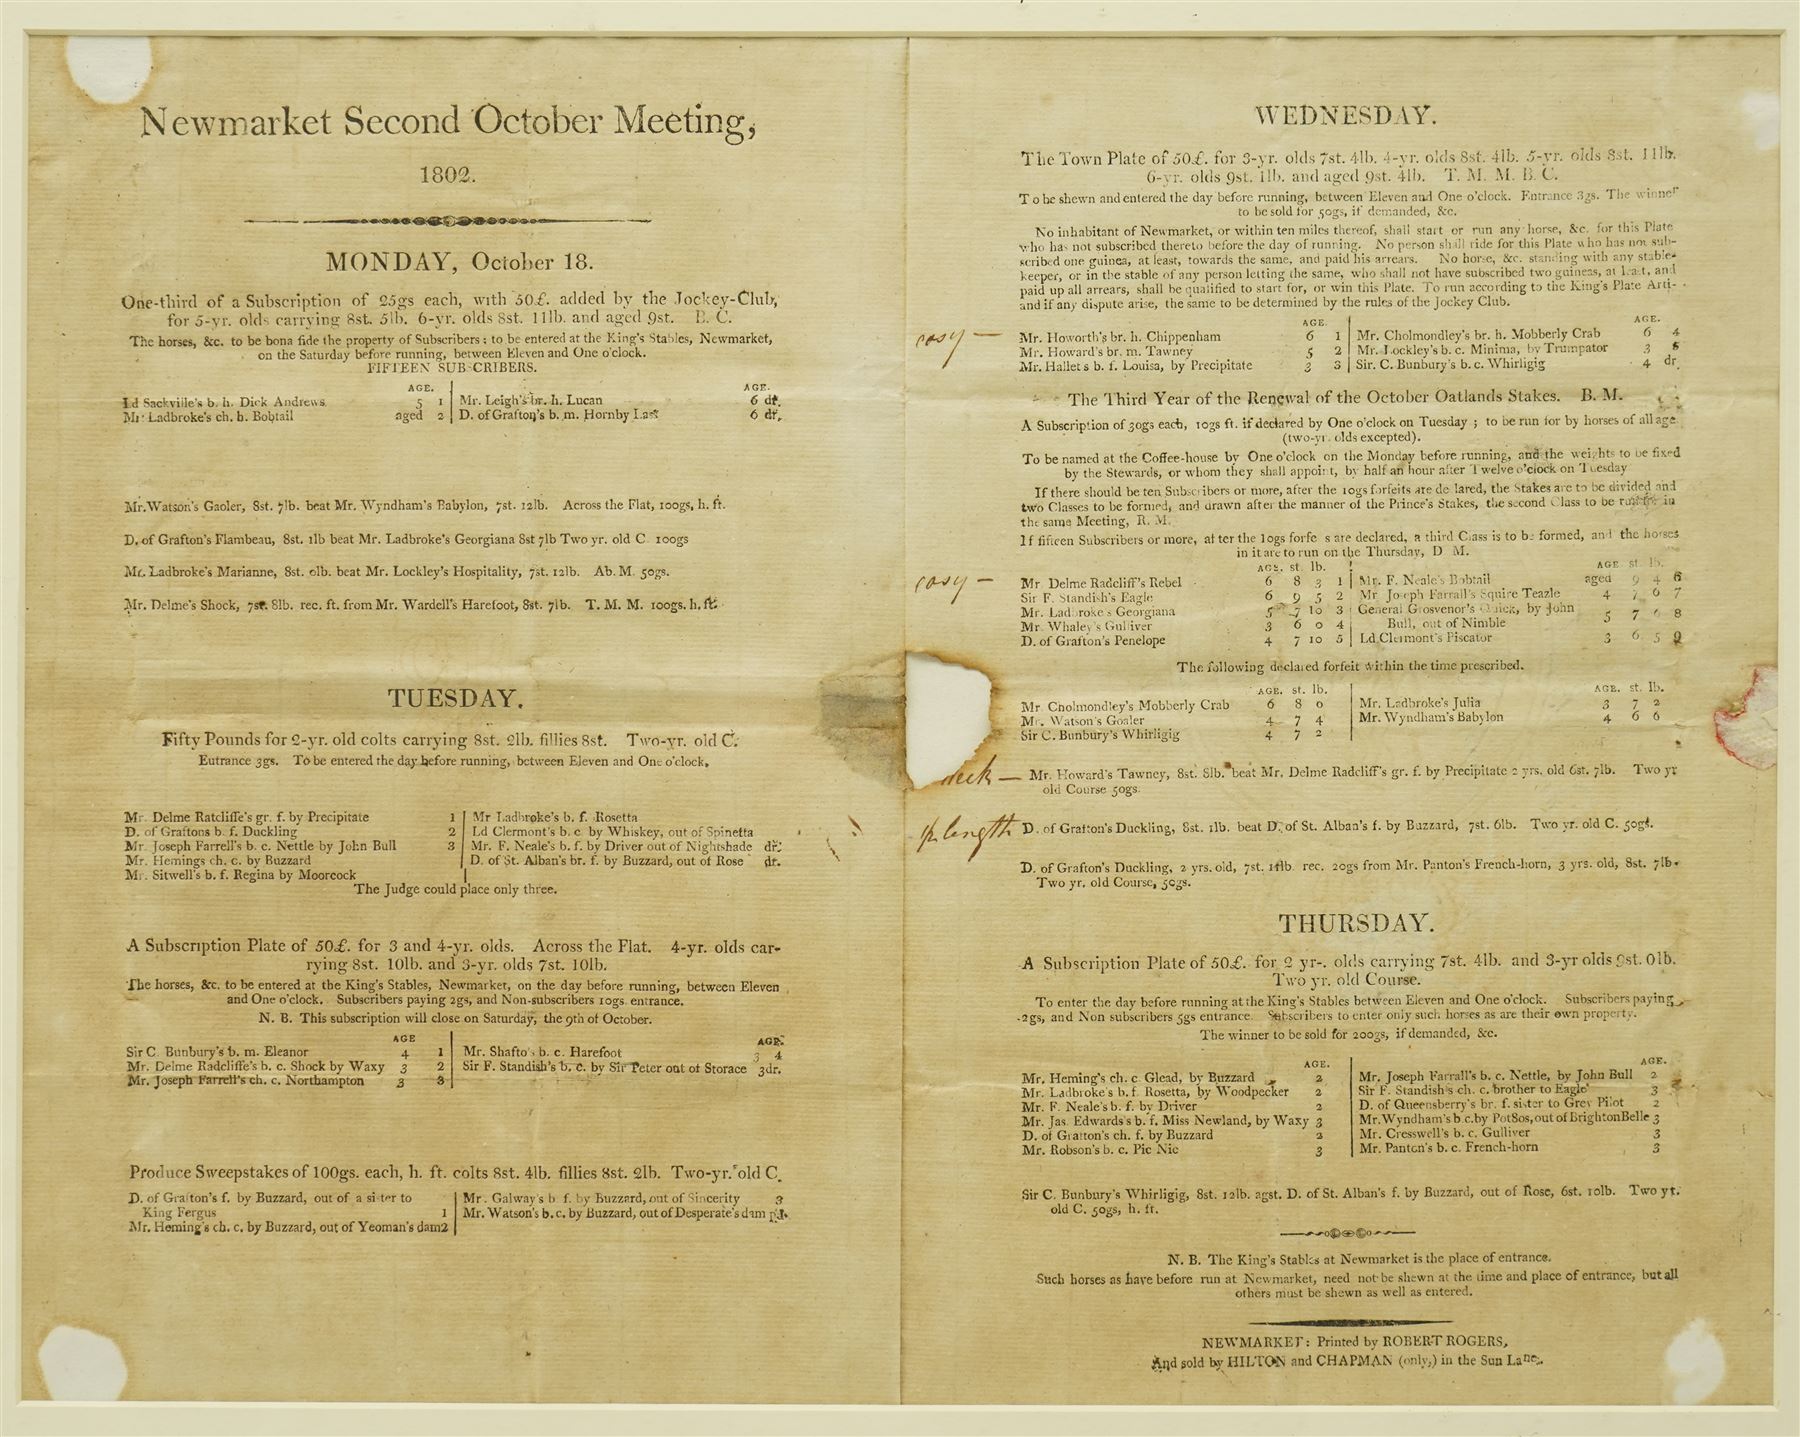 Newmarket Second October Meeting,
1802.
MONDAY, October 18.
One-third of a Subscription of 25gs each, with 50£. added by the Jockey-Club,
for 5-yr. olds carrying 8st. 5lb. 6-yr. olds 8st. 11lb. and aged 9st. B. C.
The horses, &c. to be bona fide the property of Subscribers; to be entered at the King's Stables, Newmarket,
on the Saturday before running, between Eleven and One o'clock.
FIFTEEN SUBSCRIBERS.
AGE.
Ld Sackville's b. h. Dick Andrews 5 1
Mr. Ladbroke's ch. h. Bobtail aged 2
AGE.
Mr. Leigh's br. h. Lucan 6 dr.
D. of Grafton's b. m. Hornby Lass 6 dr.
Mr. Watson's Gaoler, 8st. 7lb. beat Mr. Wyndham's Babylon, 7st. 12lb. Across the Flat, 100gs, h. ft.
D. of Grafton's Flambeau, 8st. 1lb beat Mr. Ladbroke's Georgiana 8st 7lb Two yr. old C. 100gs
Mr. Ladbroke's Marianne, 8st. 0lb. beat Mr. Lockley's Hospitality, 7st. 12lb. Ab. M. 50gs.
Mr. Delme's Shock, 7st. 8lb. rec. ft. from Mr. Wardell's Harefoot, 8st. 7lb. T. M. M. 100gs. h. ft.
TUESDAY.
Fifty Pounds for 2-yr. old colts carrying 8st. 2lb. fillies 8st. Two-yr. old C.
Eutrance 3gs. To be entered the day before running, between Eleven and One o'clock.
Mr. Delme Ratcliffe's gr. f. by Precipitate 1
D. of Graftons b. f. Duckling 2
Mr. Joseph Farrell's b. c. Nettle by John Bull 3
Mr. Hemings ch. c. by Buzzard
Mr. Sitwell's b. f. Regina by Moorcock
Mr Ladbroke's b. f. Rosetta
Ld Clermont's b. c by Whiskey, out of Spinetta
Mr. F. Neale's b. f. by Driver out of Nightshade dr.
D. of St. Alban's br. f. by Buzzard, out of Rose dr.
The Judge could place only three.
A Subscription Plate of 50£. for 3 and 4-yr. olds. Across the Flat. 4-yr. olds car-
rying 8st. 10lb. and 3-yr. olds 7st. 10lb.
The horses, &c. to be entered at the King's Stables, Newmarket, on the day before running, between Eleven
and One o'clock. Subscribers paying 2gs, and Non-subscribers 10gs. entrance.
N. B. This subscription will close on Saturday, the 9th of October.
AGE
Sir C. Bunbury's b. m. Eleanor 4 1
Mr. Delme Radcliffe's b. c. Shock by Waxy 3 2
Mr. Joseph Farrell's ch. c. Northampton 3 3
AGE.
Mr. Shafto's b. c. Harefoot 3 4
Sir F. Standish's b. c. by Sir Peter out of Storace 3dr.
Produce Sweepstakes of 100gs. each, h. ft. colts 8st. 4lb. fillies 8st. 2lb. Two-yr. old C.
D. of Grafton's f. by Buzzard, out of a sister to
King Fergus 1
Mr. Heming's ch. c. by Buzzard, out of Yeoman's dam2
Mr. Galway's b f. by Buzzard, out of Sincerity 3
Mr. Watson's b. c. by Buzzard, out of Desperate's dam pd.
WEDNESDAY.
The Town Plate of 50£. for 3-yr. olds 7st. 4lb. 4-yr. olds 8st. 4lb. 5-yr. olds 8st. 11lb.
6-yr. olds 9st. 1lb. and aged 9st. 4lb. T. M. M. B. C.
To be shewn and entered the day before running, between Eleven and One o'clock. Entrance 3gs. The winner
to be sold for 50gs, if demanded, &c.
No inhabitant of Newmarket, or within ten miles thereof, shall start or run any horse, &c. for this Plate
who has not subscribed thereto before the day of running. No person shall ride for this Plate who has not sub-
scribed one guinea, at least, towards the same, and paid his arrears. No horse, &c. standing with any stable-
keeper, or in the stable of any person letting the same, who shall not have subscribed two guineas, at least, and
paid up all arrears, shall be qualified to start for, or win this Plate. To run according to the King's Plate Arti-
and if any dispute arise, the same to be determined by the rules of the Jockey Club.
easy —
AGE.
Mr. Howorth's br. h. Chippenham 6 1
Mr. Howard's br. m. Tawney 5 2
Mr. Hallets b. f. Louisa, by Precipitate 3 3
AGE.
Mr. Cholmondley's br. h. Mobberly Crab 6 4
Mr. Lockley's b. c. Minima, by Trumpator 3 5
Sir. C. Bunbury's b. c. Whirligig 4 dr.
The Third Year of the Renewal of the October Oatlands Stakes. B. M.
A Subscription of 30gs each, 10gs ft. if declared by One o'clock on Tuesday; to be run for by horses of all age
(two-yr. olds excepted).
To be named at the Coffee-house by One o'clock on the Monday before running, and the weights to be fixed
by the Stewards, or whom they shall appoint, by half an hour after Twelve o'clock on Tuesday
If there should be ten Subscribers or more, after the 10gs forfeits are declared, the Stakes are to be divided and
two Classes to be formed, and drawn after the manner of the Prince's Stakes, the second Class to be run for in
the same Meeting, R. M.
If fifteen Subscribers or more, after the 10gs forfe s are declared, a third Class is to be formed, and the horses
in it are to run on the Thursday, D M.
easy —
AGE. st. lb.
Mr Delme Radcliff's Rebel 6 8 3 1
Sir F. Standish's Eagle 6 9 5 2
Mr. Ladbroke's Georgiana 5 7 10 3
Mr. Whaley's Gulliver 3 6 0 4
D. of Grafton's Penelope 4 7 10 5
AGE st. lb.
Mr. F. Neale's Bobtail aged 9 4 6
Mr Joseph Farrall's Squire Teazle 4 7 6 7
General Grosvenor's Quick, by John
Bull, out of Nimble 5 7 6 8
Ld Clermont's Piscator 3 6 5 9
The following declared forfeit within the time prescribed.
AGE. st. lb.
Mr. Cholmondley's Mobberly Crab 6 8 0
Mr. Watson's Goaler 4 7 4
Sir C. Bunbury's Whirligig 4 7 2
AGE. st. lb.
Mr. Ladbroke's Julia 3 7 2
Mr. Wyndham's Babylon 4 6 6
neck — Mr. Howard's Tawney, 8st. 8lb. beat Mr. Delme Radcliff's gr. f. by Precipitate 2 yrs. old 6st. 7lb. Two yr
old Course 50gs.
½ length D. of Grafton's Duckling, 8st. 1lb. beat D. of St. Alban's f. by Buzzard, 7st. 6lb. Two yr. old C. 50gs.
D. of Grafton's Duckling, 2 yrs. old, 7st. 11lb. rec. 20gs from Mr. Panton's French-horn, 3 yrs. old, 8st. 7lb.
Two yr. old Course, 50gs.
THURSDAY.
A Subscription Plate of 50£. for 2 yr-. olds carrying 7st. 4lb. and 3-yr olds 9st. 0lb.
Two yr. old Course.
To enter the day before running at the King's Stables between Eleven and One o'clock. Subscribers paying
2gs, and Non subscribers 5gs entrance. Subscribers to enter only such horses as are their own property.
The winner to be sold for 200gs, if demanded, &c.
AGE.
Mr. Heming's ch. c. Glead, by Buzzard 2
Mr. Ladbroke's b. f. Rosetta, by Woodpecker 2
Mr. F. Neale's b. f. by Driver 2
Mr. Jas. Edwards's b. f. Miss Newland, by Waxy 3
D. of Grafton's ch. f. by Buzzard 2
Mr. Robson's b. c. Pic Nic 3
AGE.
Mr. Joseph Farrall's b. c. Nettle, by John Bull 2
Sir F. Standish's ch. c. brother to Eagle 3
D. of Queensberry's br. f. sister to Grey Pilot 2
Mr. Wyndham's b. c. by Pot8os, out of Brighton Belle 3
Mr. Cresswell's b. c. Gulliver 3
Mr. Panton's b. c. French-horn 3
Sir C. Bunbury's Whirligig, 8st. 12lb. agst. D. of St. Alban's f. by Buzzard, out of Rose, 6st. 10lb. Two yr.
old C. 50gs, h. ft.
N. B. The King's Stables at Newmarket is the place of entrance.
Such horses as have before run at Newmarket, need not be shewn at the time and place of entrance, but all
others must be shewn as well as entered.
NEWMARKET: Printed by ROBERT ROGERS,
And sold by HILTON and CHAPMAN (only,) in the Sun Lane.